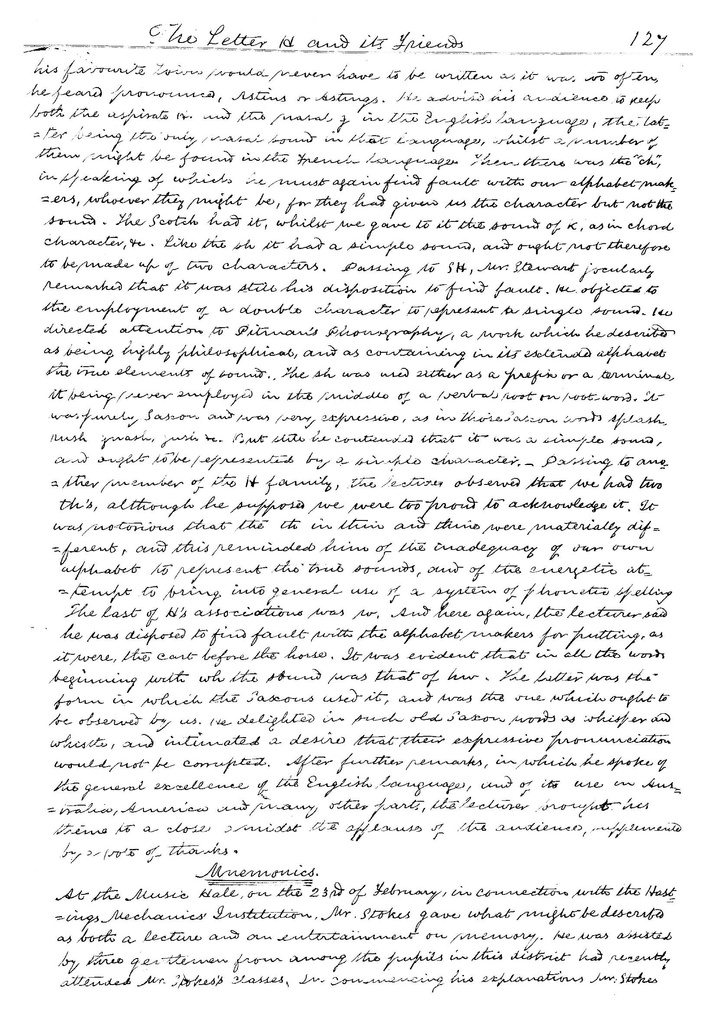 The Letter H and its Friends 127
his favourite town would never have to be written as it was, so often,
he feared pronounced, Astins or Astings. He advised his audience to keep
both the aspirate h. and the nasal g in the English language, the lat-
=ter being the only nasal sound in that language, whilst a number of
them might be found in the French language. Then there was the "ch",
in speaking of which he must again find fault with our alphabet mak=
=ers, whoever they might be, for they had given us the character but not the
sound. The Scotch had it, whilst we gave to it the sound of K, as in chord
character, &c. Like the sh it had a simple sound, and ought not therefore
to be made up of two characters. Passing to SH, Mr. Stewart jocularly
remarked that it was still his disposition to find fault. He objected to
the employment of a double character to represent a single sound. He
directed attention to Pitman's Phonography, a work which he described
as being highly philosophical, and as containing in its extended alphabet
the true elements of sound. The sh was used either as a prefix or a terminal,
it being never employed in the middle of a verbal root or root-word. It
was purely Saxon and was very expressive, as in those Saxon words splash,
rush gnash, gush &c. But still he contended that it was a simple sound,
and ought to be represented by a simple character. – Passing to ano-
=ther member of the H family, the lecturer observed that we had two
th's, although he supposed we were too proud to acknowledge it. It
was notorious that the th in thin and thine were materially dif=
=ferent, and this reminded him of the inadequacy of our own
alphabet to represent the true sounds, and of the energetic at=
=tempt to bring into general use of a system of phonetic spelling
The last of H's associations was w. And here again, the lecturer said
he was disposed to find fault with the alphabet makers for putting, as
it were, the cart before the horse. It was evident that in all the words
beginning with wh the sound was that of hw. The latter was the
form in which the Saxons used it, and was the one which ought to
be observed by us. He delighted in such old Saxon words as whisper and
whistle, and intimated a desire that their expressive pronunciation
would not be corrupted. After further remarks, in which he spoke of
the general excellence of the English language, and of its use in Aus=
=tralia, America and many other parts, the lecturer brought his
theme to a close amidst the applause of the audience, supplemented
by a vote of thanks.
Mnemonics.
At the Music Hall, on the 23rd of February, in connection with the Hast-
=ings Mechanics Institution, Mr. Stokes gave what might be described
as both a lecture and an entertainment on memory. He was assisted
by three gentlemen from among the pupils in this district had recently
attended Mr. Stokes's classes. In commencing his explanations Mr. Stokes